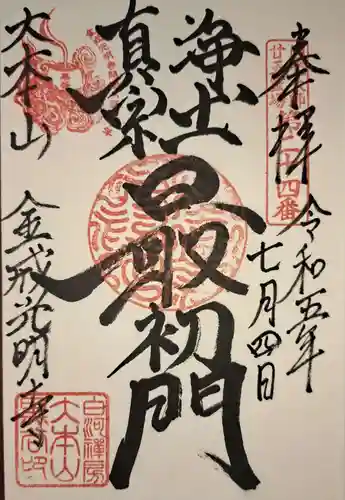 奉拝
令和五年
七月四日
浄土
真宗
最初門
大本山
金戒光明寺
四番
白河禅房
大本山